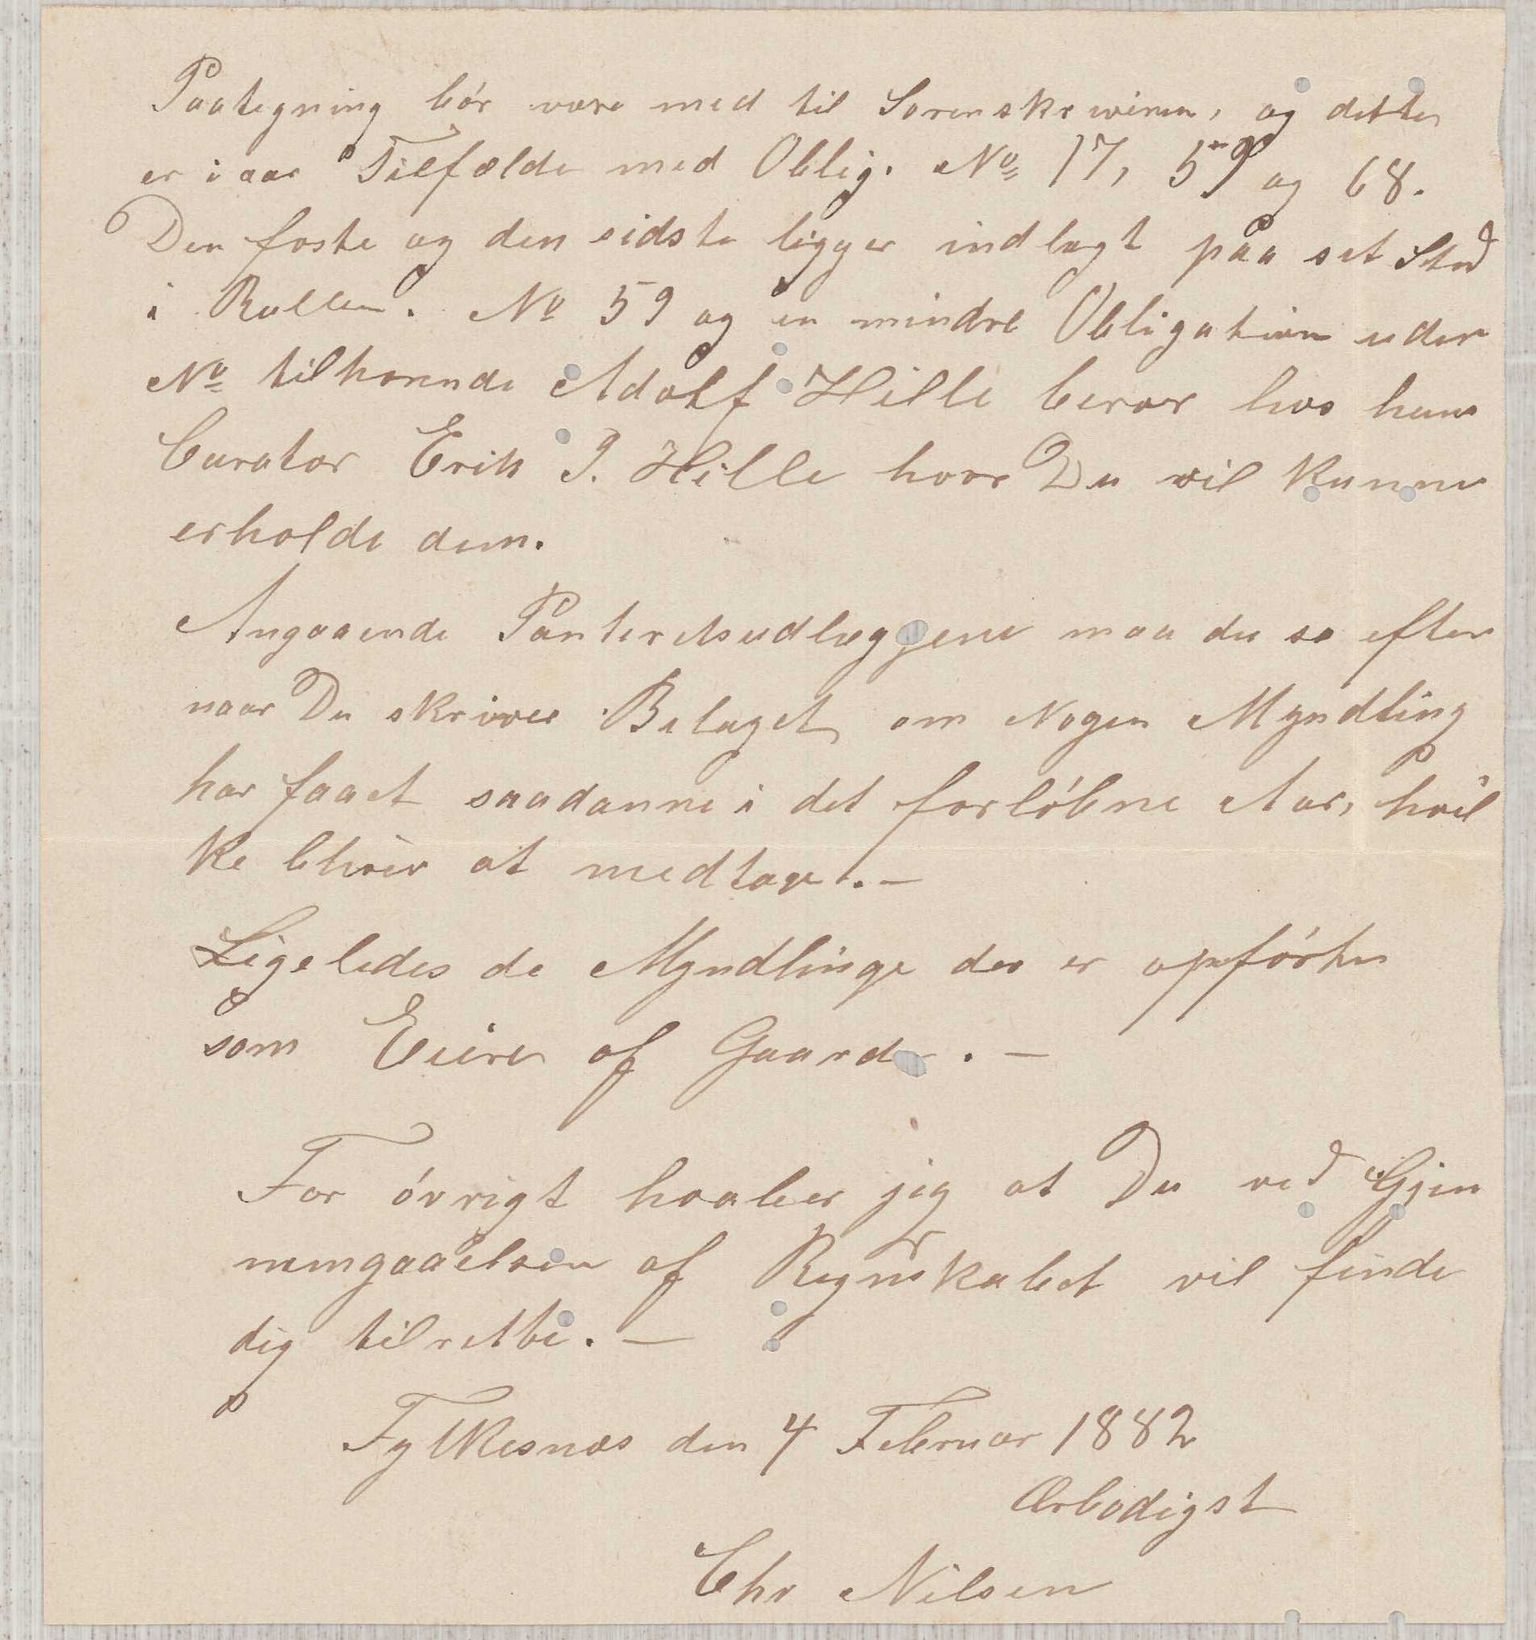 Paategning bór være med til Sorenskriveren, og dette
er i aar Tilfælde med Oblig. No 17, 59 og 68.
Den foste og den sidste ligger indlagt paa set Sted
i Rullen. No 59 og en mindre Obligation uden
No tilhorende Adolf Hille beror hos hans
Curator Erik P. Hille hvor Du vil kunne
erholde dem.
Angaaende Panteretsudlæggene maa du se efter
naar Du skriver Belaget om Nogen Myndling
har faaet saadanne i det forlóbne Aar, hvil
ke bliver at medtage. —
Ligeledes de Myndlinge der er opfórte
som Eiere af Gaarde. —
For óvrigt haaber jeg at Du ved Gjen
nemgaaelsen af Regnskabet vil finde
dig tilrette. —
Fylkesnæs den 4 Februar 1882
Ærbodigst
Chr Nilsen